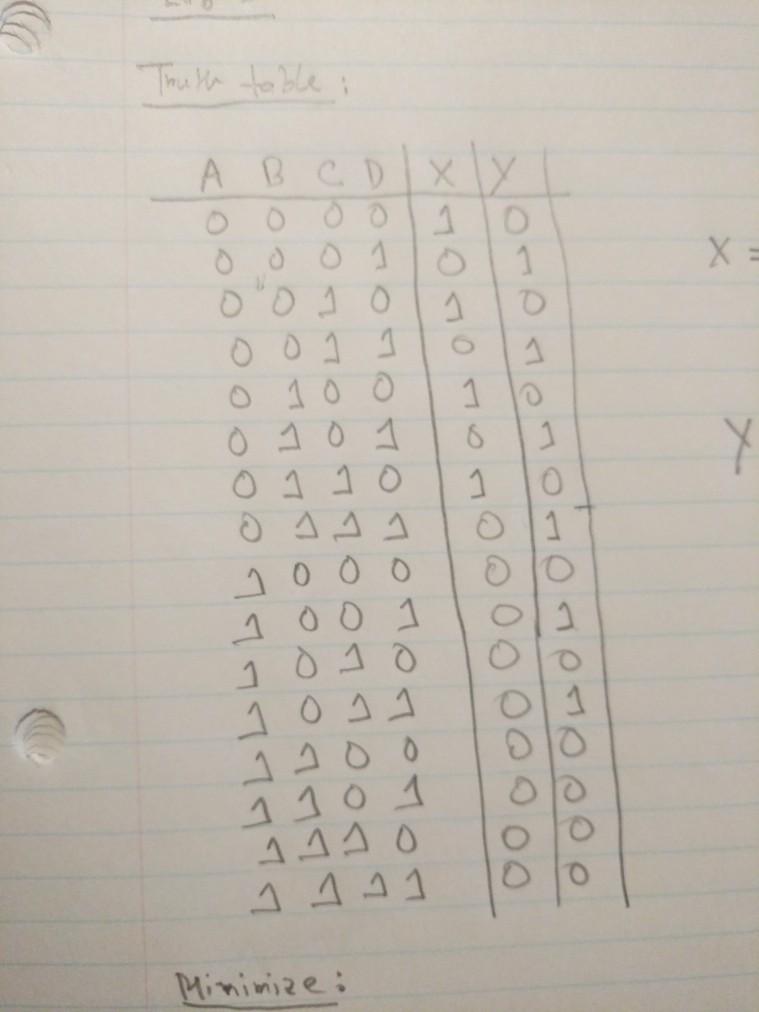 Truth table:
A B C D X Y
0 0 0 0 1 0
0 0 0 1 0 1
X =
0 0 1 0 1 0
0 0 1 1 0 1
0 1 0 0 1 0
0 1 0 1 0 1
Y
0 1 1 0 1 0
0 1 1 1 0 1
1 0 0 0 0 0
1 0 0 1 0 1
1 0 1 0 0 0
1 0 1 1 0 1
1 1 0 0 0 0
1 1 0 1 0 0
1 1 1 0 0 0
1 1 1 1 0 0
Minimize: